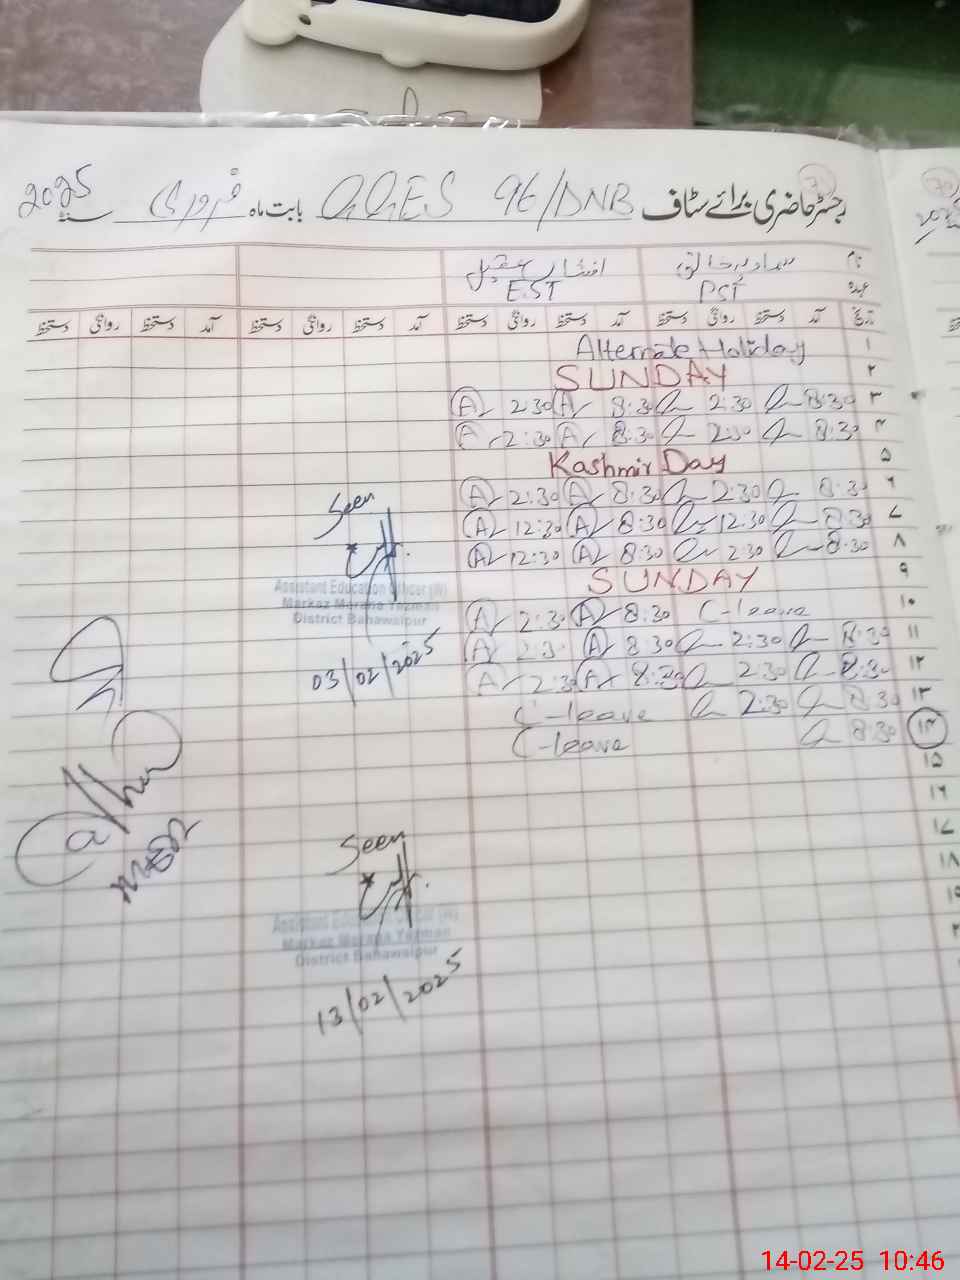 رجسٹر حاضری برائے سٹاف GGES 96/DNB بابت ماہ فروری سنہ 2025
نام
افشاں عقیل
عہدہ PST EST
تاریخ آمد دستخط روانگی دستخط آمد دستخط روانگی دستخط آمد دستخط روانگی دستخط آمد دستخط روانگی دستخط
۱ Alternate Holiday
۲ SUNDAY
۳ 8:30 2:30 8:30 2:30
۴ 8:30 2:30 8:30 2:30
۵ Kashmir Day
۶ 8:30 2:30 8:30 2:30
۷ 8:30 12:30 8:30 12:30
۸ 8:30 2:30 8:30 12:30
۹ SUNDAY
۱۰ C-leave 8:30 2:30
۱۱ 8:30 2:30 8:30 2:30
۱۲ 8:30 2:30 8:30 2:30
۱۳ 8:30 2:30 C-leave
۱۴ 8:30 C-leave
۱۵
۱۶
۱۷
۱۸
۱۹
Seen
Assistant Education Officer (W)
Markaz Marana Yazman
District Bahawalpur
03/02/2025
Seen
Assistant Education Officer (W)
Markaz Marana Yazman
District Bahawalpur
13/02/2025
14-02-25 10:46